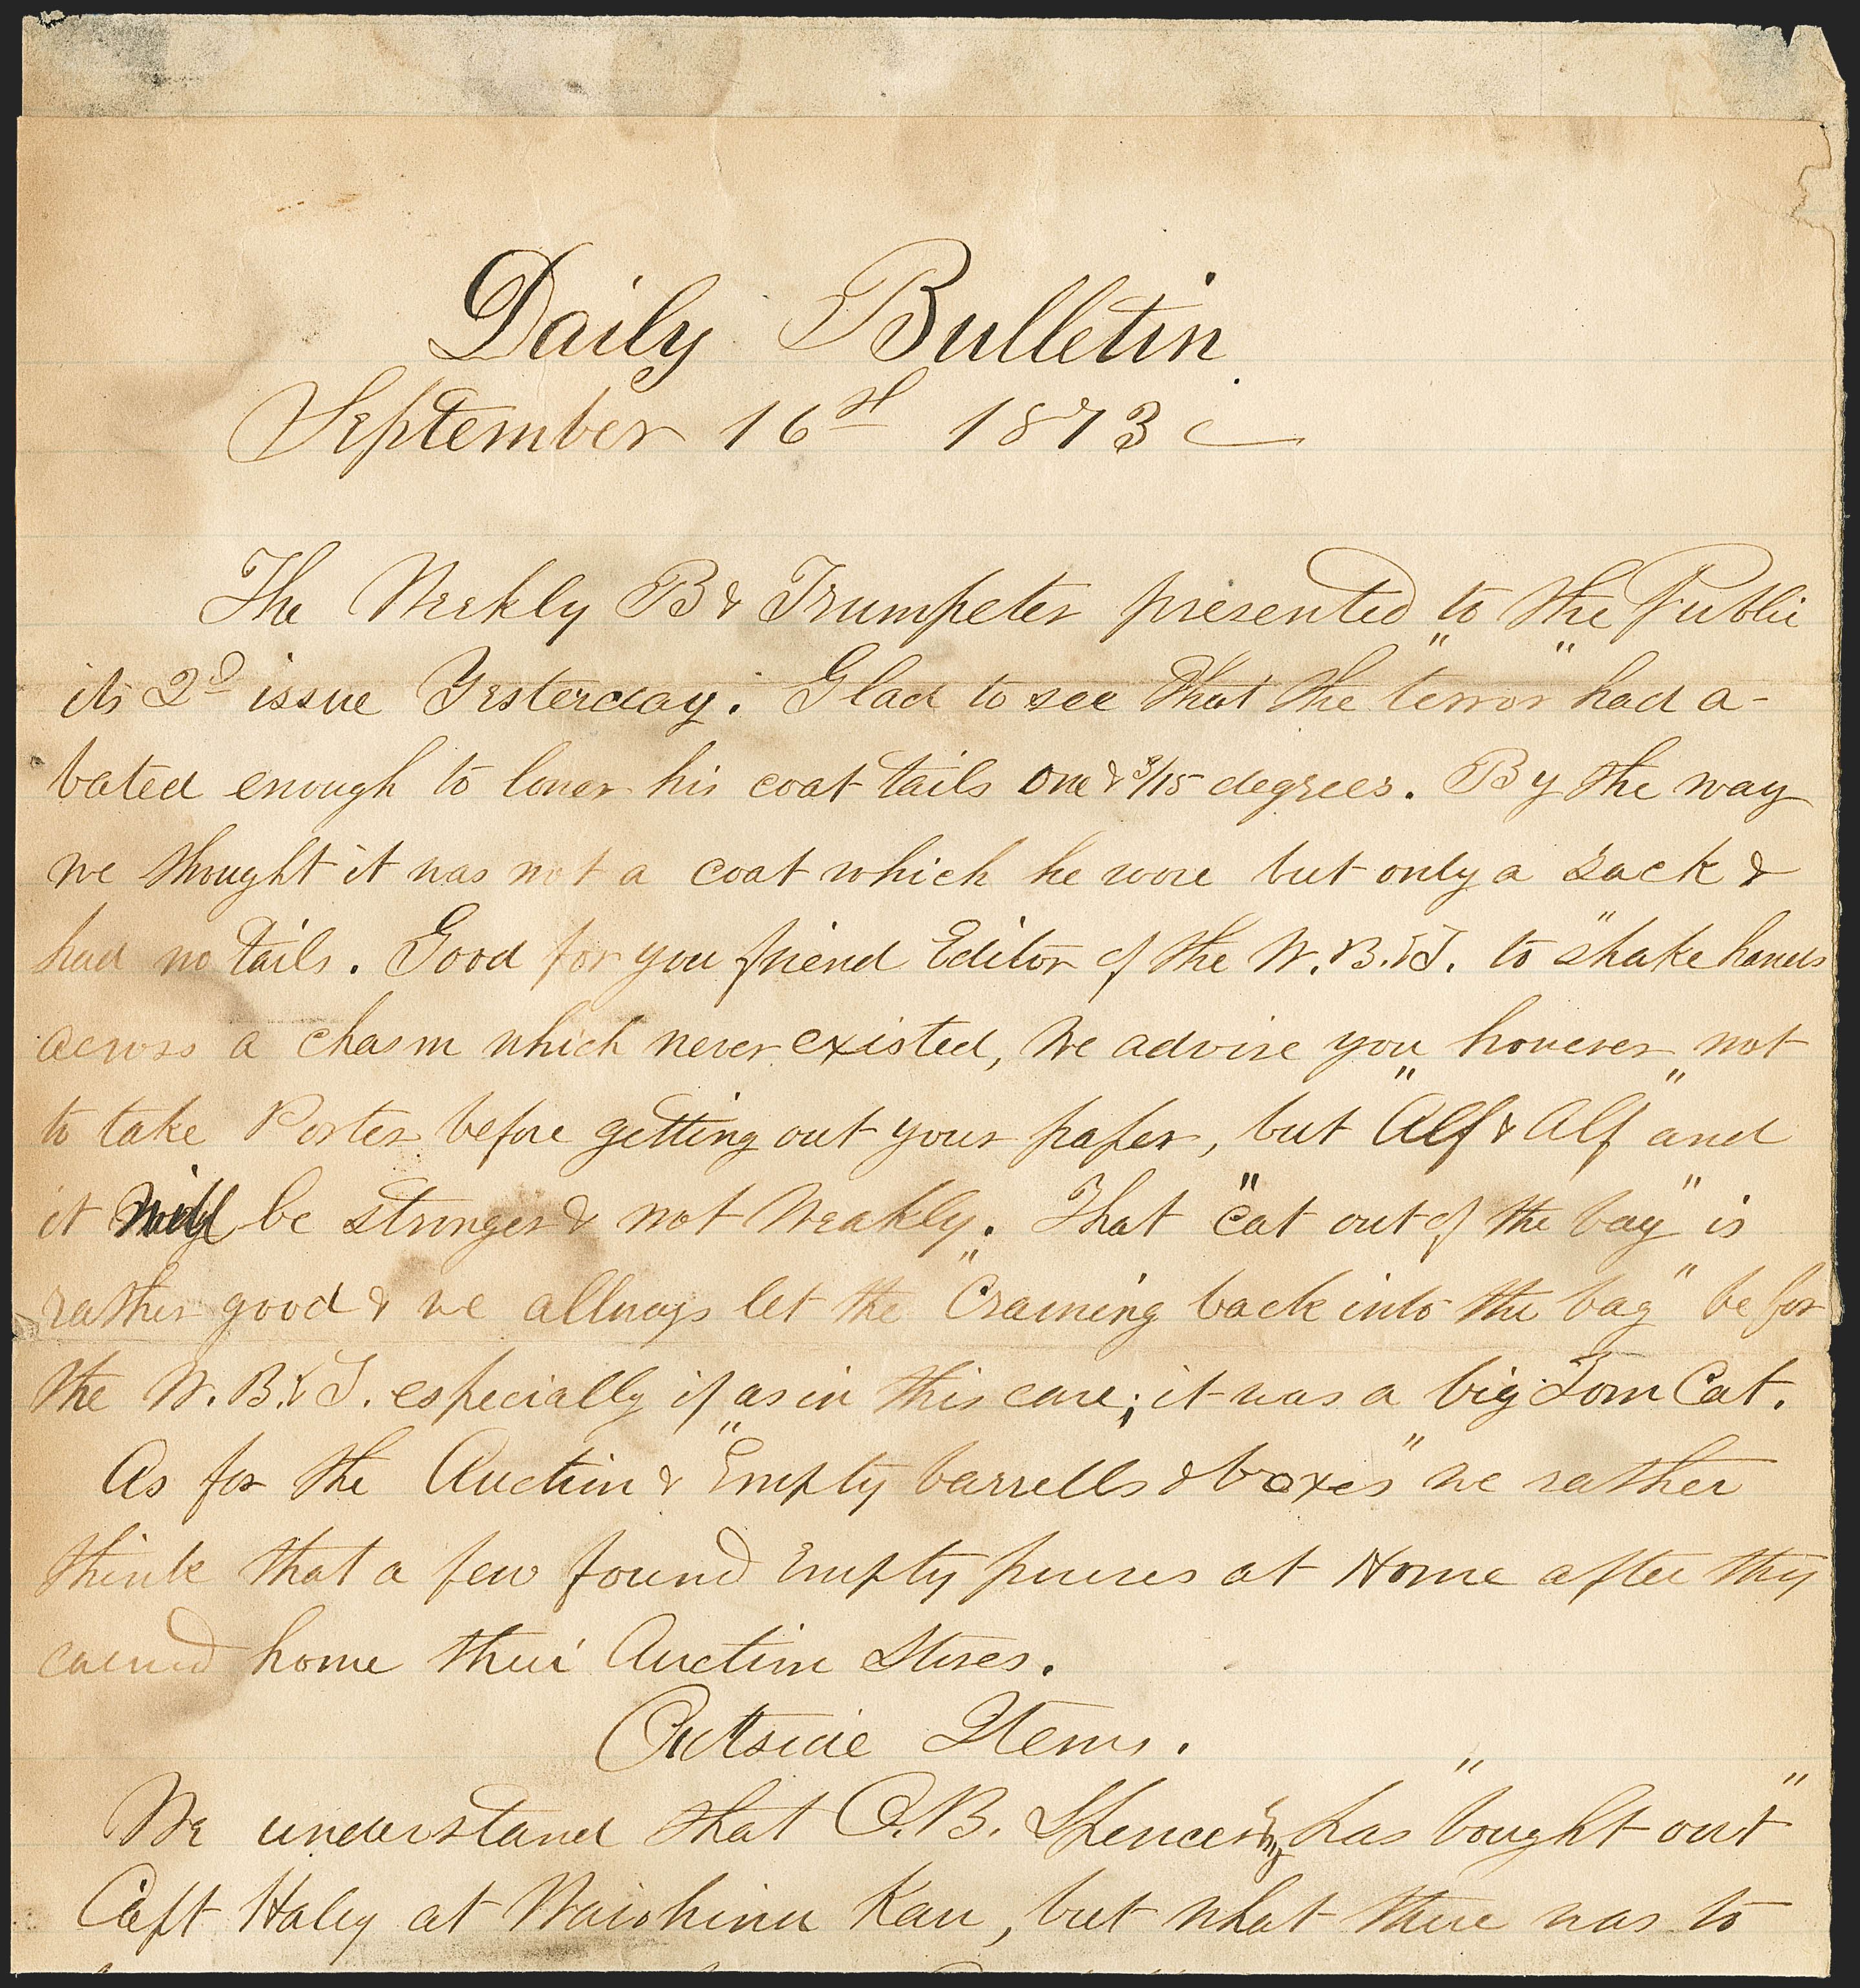 Daily Bulletin.
September 16th 1873
The Weekly B & Trumpeter presented to the Public
its 2d issue Yesterday. Glad to see that the "terror" had a-
bated enough to lower his coat tails one & 3/15 degrees. By the way
we thought it was not a coat which he wore but only a sack &
had no tails. Good for you friend Editor of the W. B. & T. to "shake hands
across a chasm which never existed, We advise you however not
to take Porter before getting out your paper, but "Alf & Alf" and
it will be stronger & not Weakly. That "cat out of the bag" is
rather good & we allways let the "Craming back into the bag" be for
the W. B. & T. especially if as in this case; it was a big Tom Cat.
As for the Auction & "Empty barrells & boxes" we rather
think that a few found Empty purses at Home after they
carried home their Auction Stores.
Outside Items.
We understand that O. B. Spencer Esq has "bought out"
Capt Haley at Waiohinu Kau, but what there was to